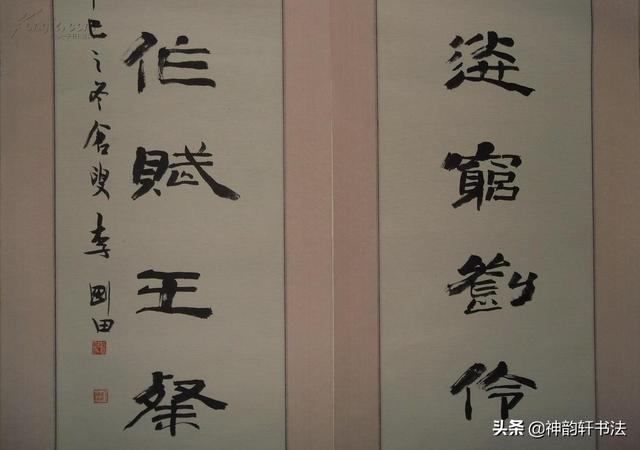 送窮劉伶
作賦王粲
巳之冬倉叟李剛田
头条 @神韵轩书法